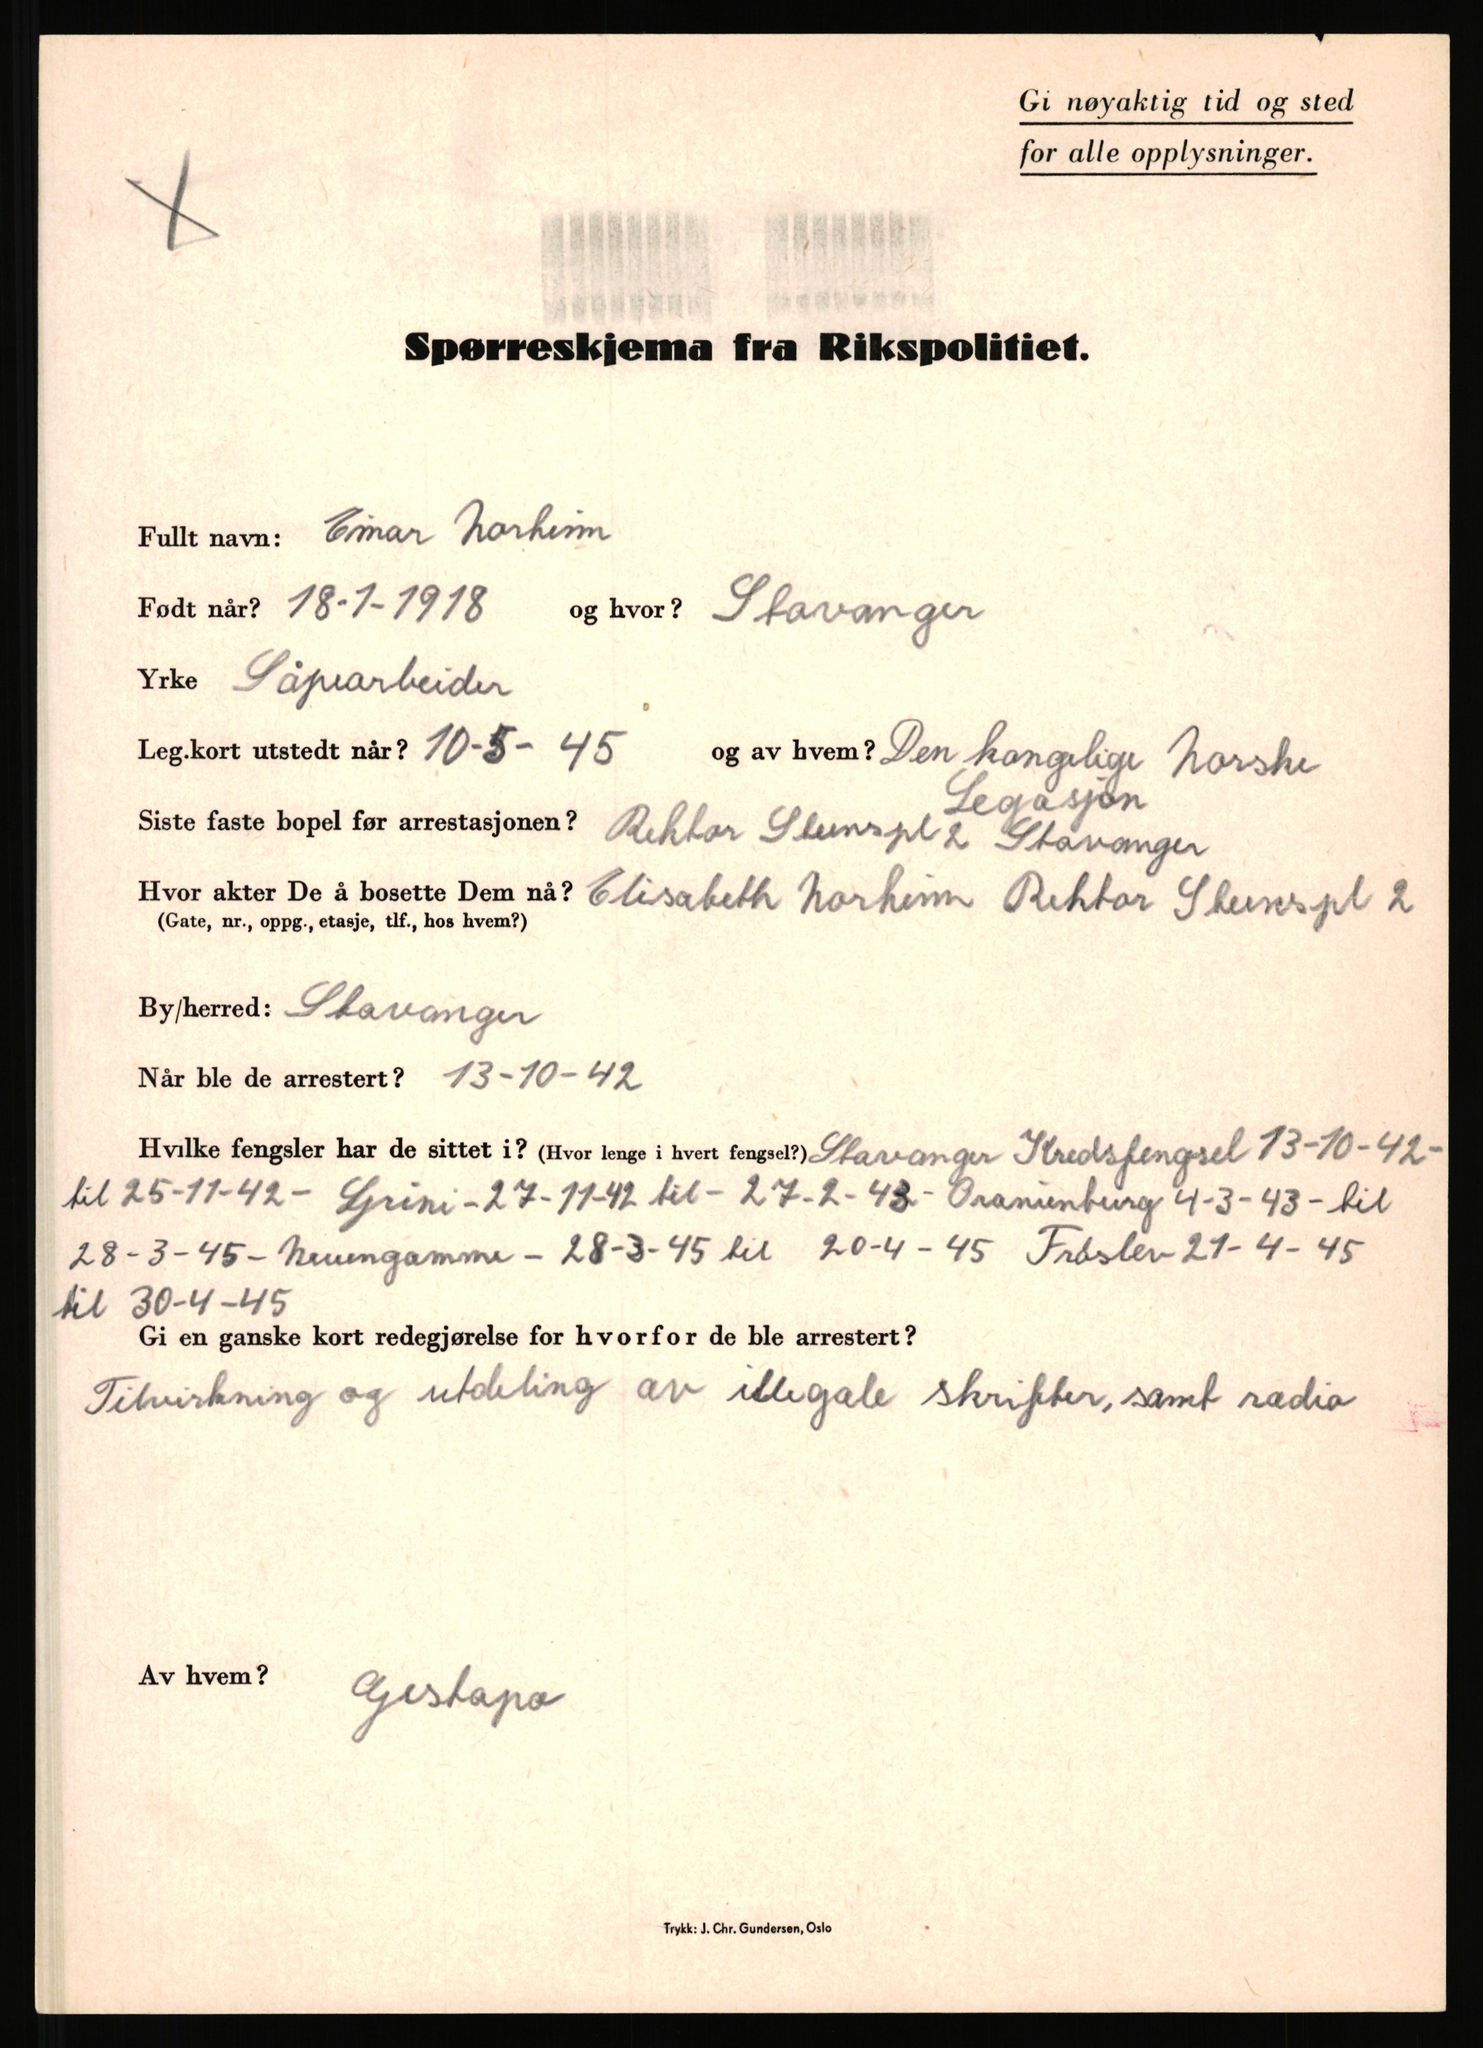 Gi nøyaktig tid og sted
for alle opplysninger.
Spørreskjema fra Rikspolitiet.
Fullt navn: Einar Norheim
Født når? 18-1-1918 og hvor? Stavanger
Yrke Såpearbeider
Leg.kort utstedt når? 10-5-45 og av hvem? Den kongelige Norske
Legasjon
Siste faste bopel før arrestasjonen? Rektor Steenspl 2 Stavanger
Hvor akter De å bosette Dem nå? Elisabeth Norheim Rektor Steenspl 2
(Gate, nr., oppg., etasje, tlf., hos hvem?)
By/herred: Stavanger
Når ble de arrestert? 13-10-42
Hvilke fengsler har de sittet i? (Hvor lenge i hvert fengsel?) Stavanger Kredsfengsel 13-10-42-
til 25-11-42- Grini - 27-11-42 til - 27-2-43- Oranienburg 4-3-43 - til
28-3-45- Neuengamme - 28-3-45 til 20-4-45 Frøslev 21-4-45
til 30-4-45
Gi en ganske kort redegjørelse for hvorfor de ble arrestert?
Tilvirkning og utdeling av illegale skrifter, samt radio
Av hvem? Gestapo
Trykk: J. Chr. Gundersen, Oslo